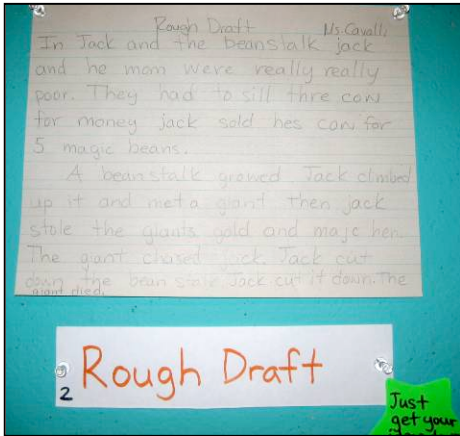 Rough Draft Ms. Cavalli
In Jack and the beanstalk jack
and he mom were really really
poor. They had to sill thre cow
for money jack sold hes cow for
5 magic beans.
A bean stalk growed Jack climbed
up it and met a giant then jack
stole the giants gold and majc hen.
The giant chased jack. Jack cut
down the bean stalk Jack cut it down. The
giant died.
2 Rough Draft
Just
get your